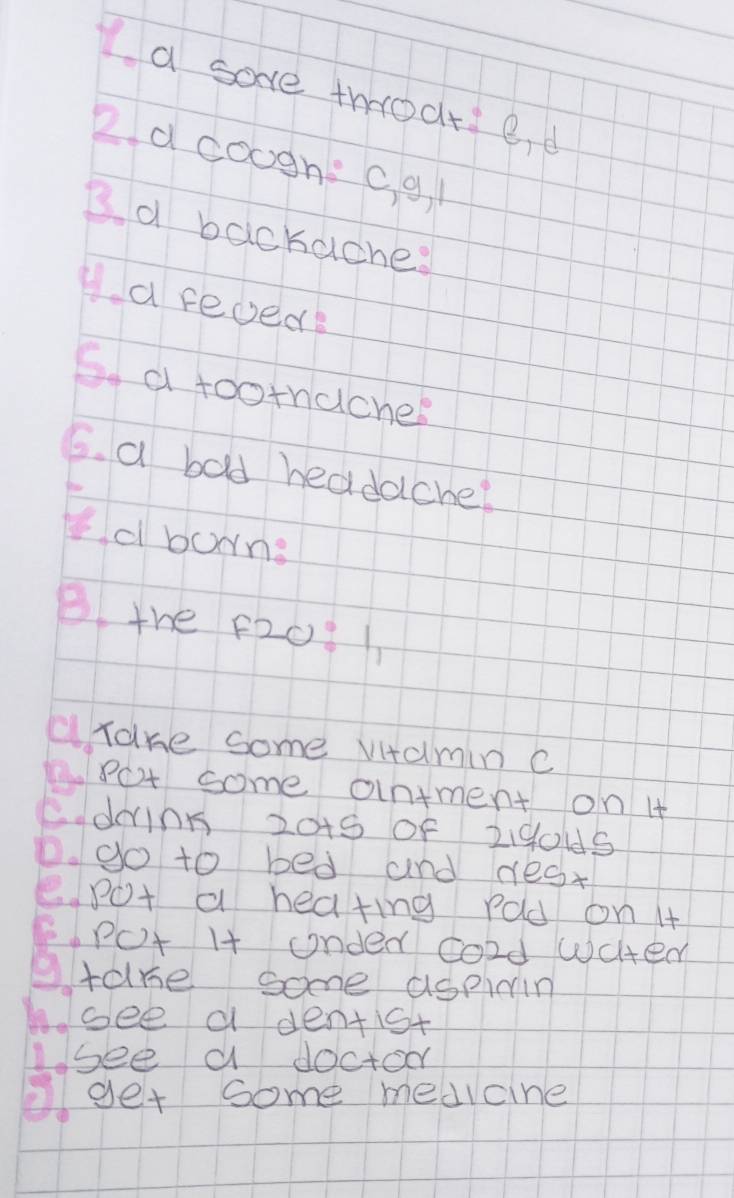 1. a sore throat: e, d
2. a cough: c, g, i
3. a backache:
4. a fever:
5. a toothache:
6. a bad headache:
7. a burn:
8. the flu: h
a. take some vitamin c
B. put some ointment on it
c. drink lots of liquids
D. go to bed and rest
e. put a heating pad on it
F. put it under cold water
g. take some aspirin
h. see a dentist
i. see a doctor
J. get some medicine